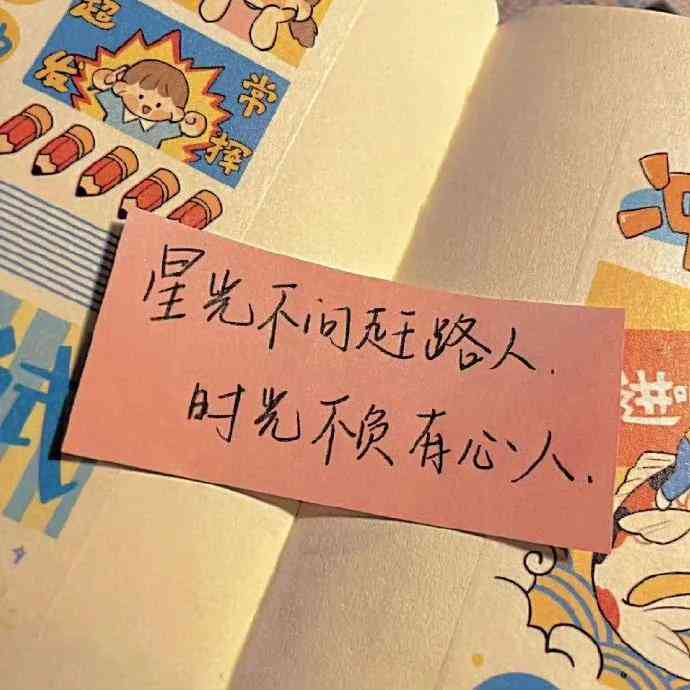 超常
发挥
星光不问赶路人.
时光不负有心人.
试